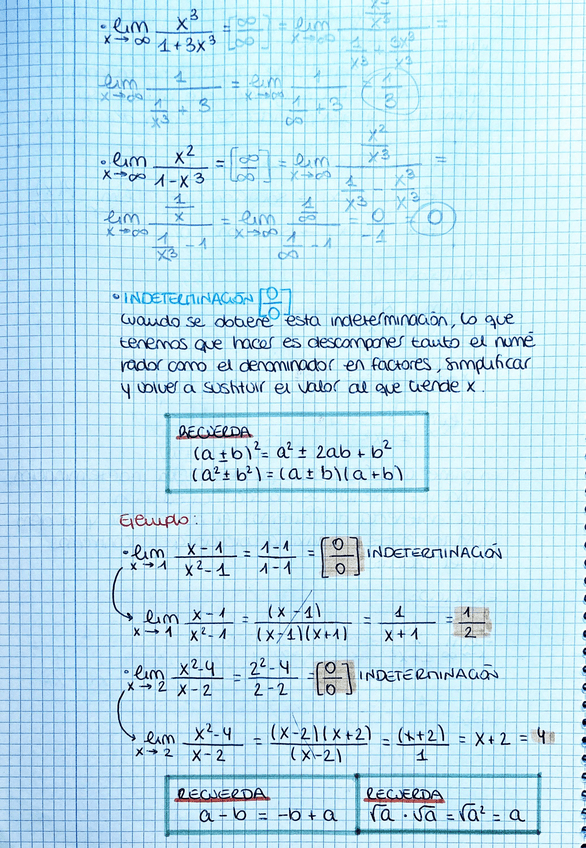 • lim x→∞ x³/(1+3x³) = [∞/∞] = lim x→∞ (x³/x³)/(1/x³ + 3x³/x³) =
lim x→∞ 1/(1/x³ + 3) = lim x→∞ 1/(1/∞ + 3) = 1/3
• lim x→∞ x²/(1-x³) = [∞/∞] = lim x→∞ (x²/x³)/(1/x³ - x³/x³) =
lim x→∞ (1/x)/(1/x³ - 1) = lim x→∞ (1/∞)/(1/∞ - 1) = 0/-1 = 0
• INDETERMINACIÓN [0/0]
Cuando se obtiene esta indeterminación, lo que
tenemos que hacer es descomponer tanto el nume
rador como el denominador en factores, simplificar
y volver a sustituir el valor al que tiende x.
RECUERDA
(a ± b)² = a² ± 2ab + b²
(a² ± b²) = (a ± b)(a + b)
Ejemplo:
• lim x→1 (x-1)/(x²-1) = (1-1)/(1-1) = [0/0] INDETERMINACIÓN
lim x→1 (x-1)/(x²-1) = (x-1)/((x-1)(x+1)) = 1/(x+1) = 1/2
• lim x→2 (x²-4)/(x-2) = (2²-4)/(2-2) = [0/0] INDETERMINACIÓN
lim x→2 (x²-4)/(x-2) = ((x-2)(x+2))/(x-2) = (x+2)/1 = x+2 = 4
RECUERDA
a - b = -b + a
RECUERDA
√a · √a = √a² = a